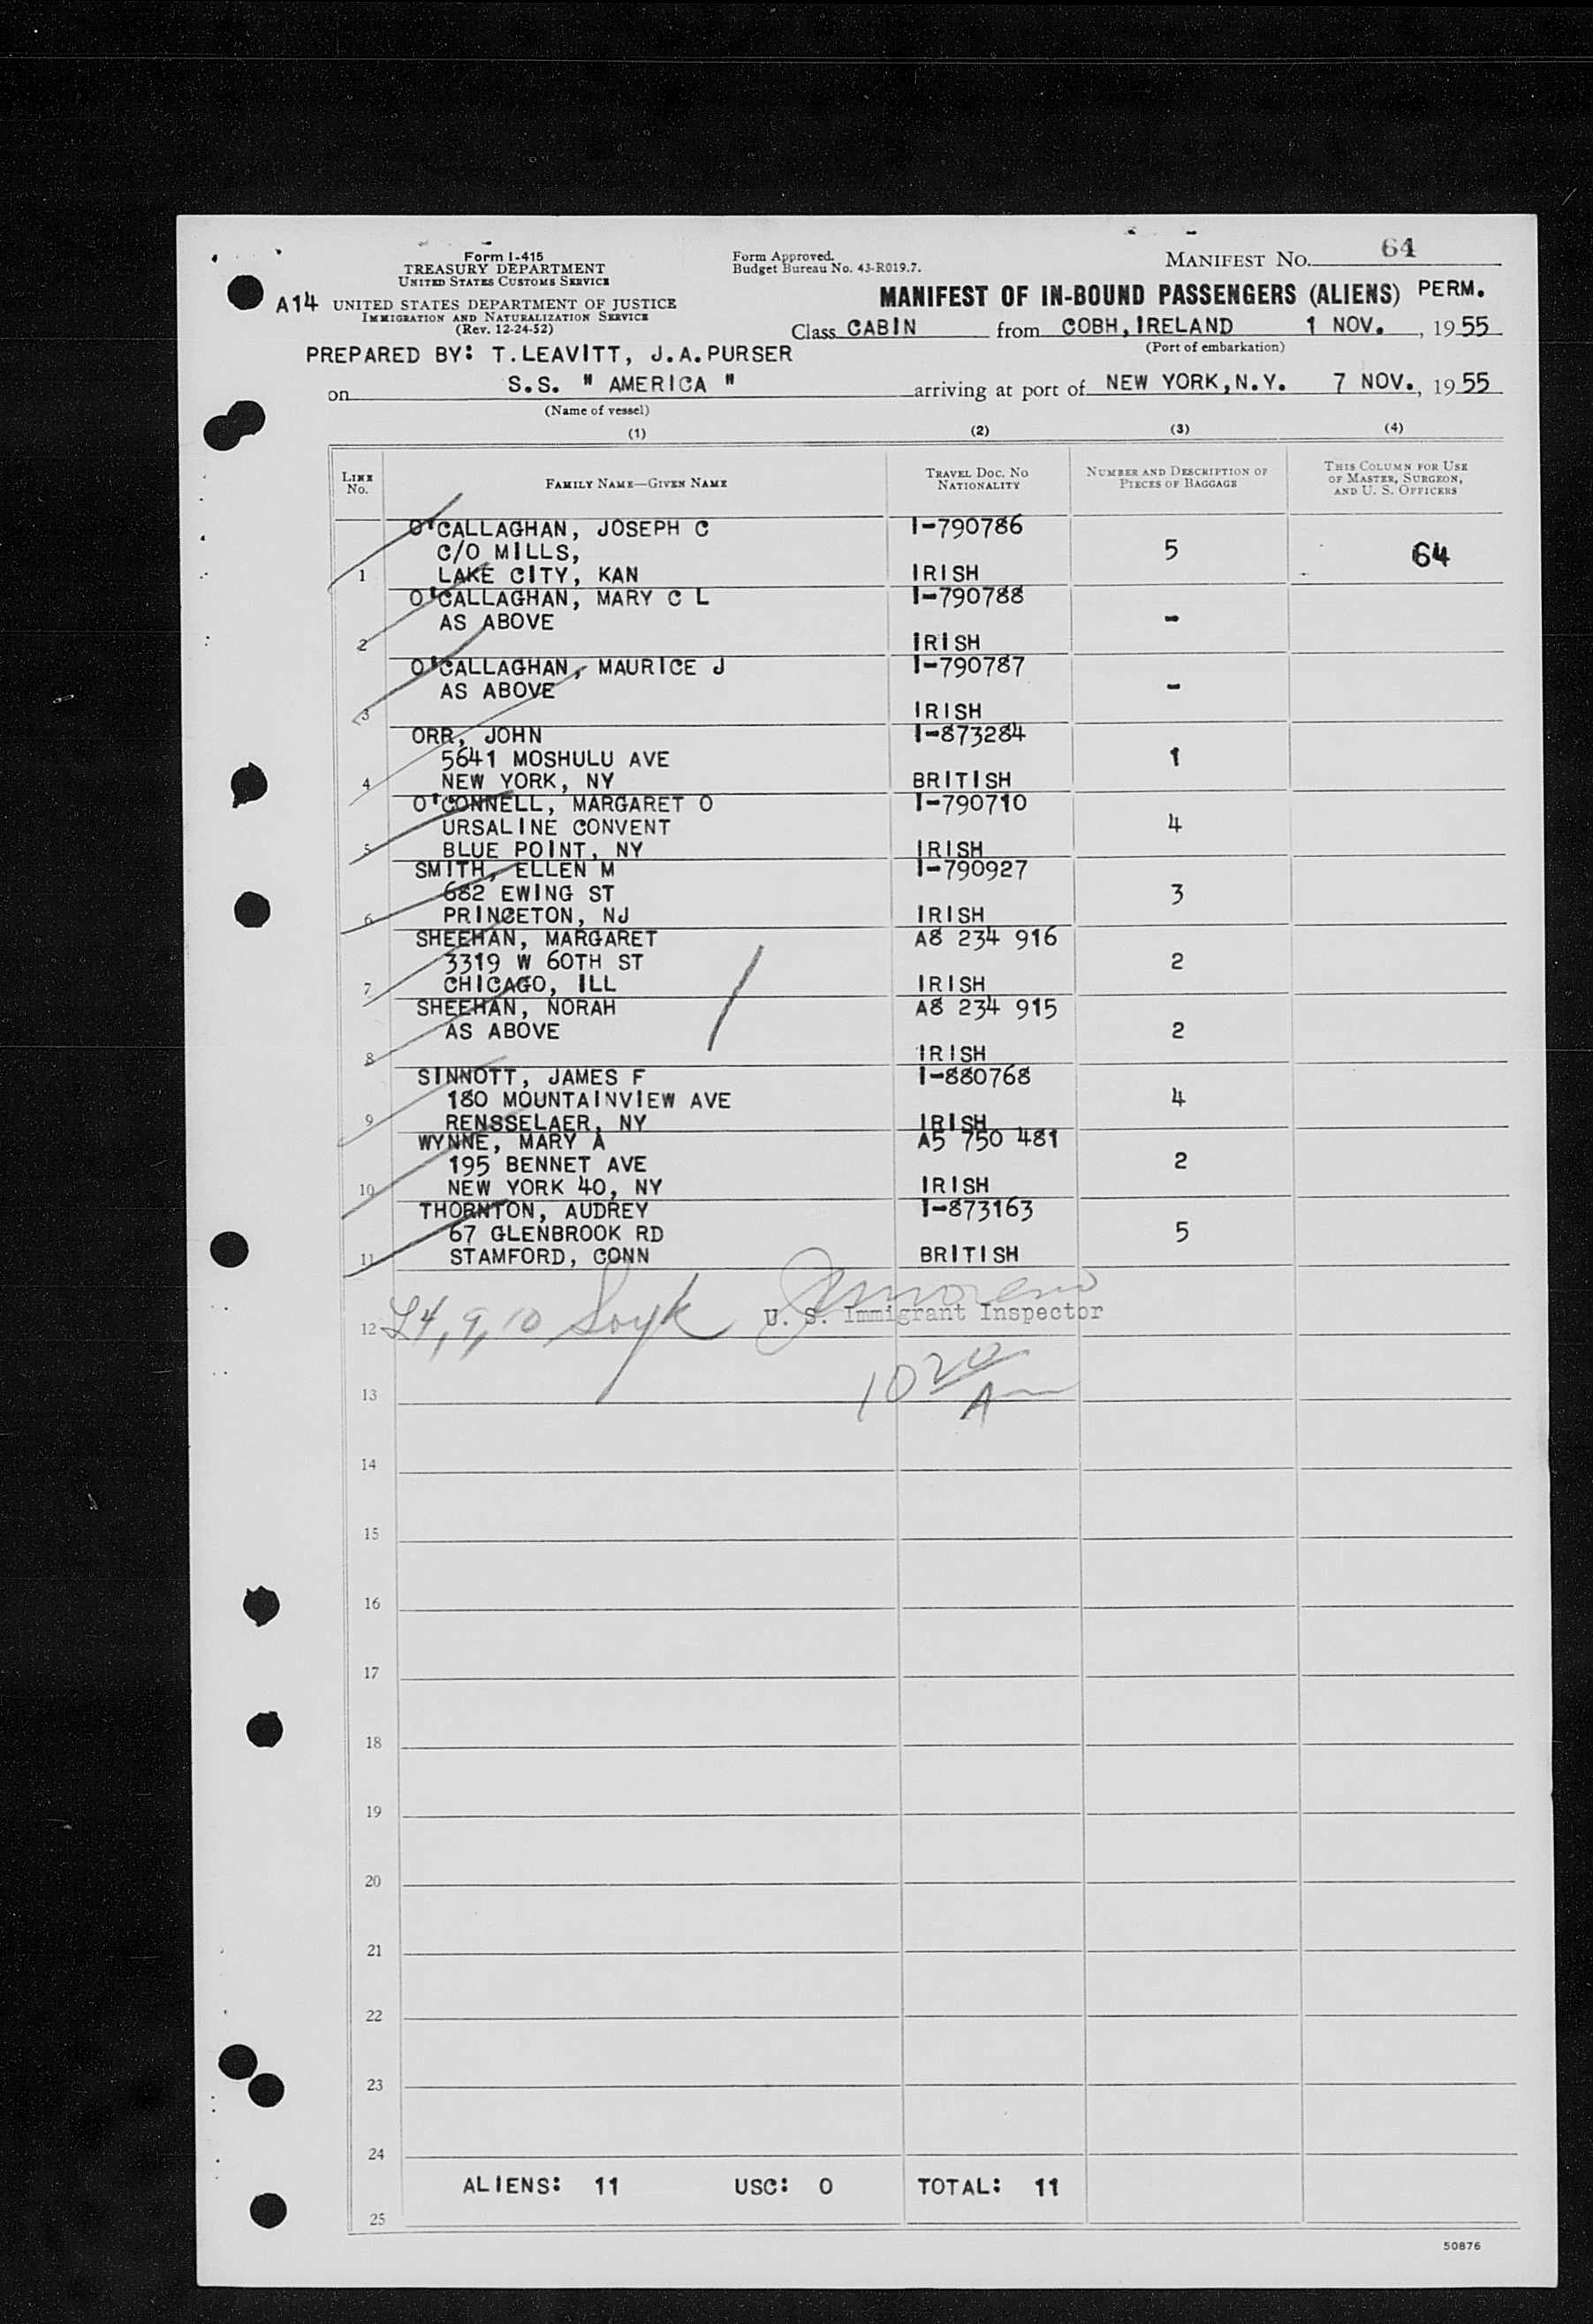 Form I-415
TREASURY DEPARTMENT
UNITED STATES CUSTOMS SERVICE
Form Approved.
Budget Bureau No. 43-R019.7.
MANIFEST NO. 64
A14 UNITED STATES DEPARTMENT OF JUSTICE
IMMIGRATION AND NATURALIZATION SERVICE
(Rev. 12-24-52)
MANIFEST OF IN-BOUND PASSENGERS (ALIENS) PERM.
Class CABIN from COBH, IRELAND 1 NOV. , 1955
(Port of embarkation)
PREPARED BY: T.LEAVITT, J.A.PURSER
on S.S. " AMERICA " arriving at port of NEW YORK, N.Y. 7 NOV. , 1955
(Name of vessel)
(1) (2) (3) (4)
LINE No. FAMILY NAME—GIVEN NAME TRAVEL DOC. NO NATIONALITY NUMBER AND DESCRIPTION OF PIECES OF BAGGAGE THIS COLUMN FOR USE OF MASTER, SURGEON, AND U. S. OFFICERS
O'CALLAGHAN, JOSEPH C I-790786
C/O MILLS, 5 64
1 LAKE CITY, KAN IRISH
O'CALLAGHAN, MARY C L I-790788
AS ABOVE -
2 IRISH
O'CALLAGHAN, MAURICE J I-790787
AS ABOVE -
3 IRISH
ORR, JOHN I-873284
5641 MOSHULU AVE 1
4 NEW YORK, NY BRITISH
O'CONNELL, MARGARET O I-790710
URSALINE CONVENT 4
5 BLUE POINT, NY IRISH
SMITH, ELLEN M I-790927
682 EWING ST 3
6 PRINCETON, NJ IRISH
SHEEHAN, MARGARET A8 234 916
3319 W 60TH ST 2
7 CHICAGO, ILL IRISH
SHEEHAN, NORAH A8 234 915
AS ABOVE 2
8 IRISH
SINNOTT, JAMES F I-880768
180 MOUNTAINVIEW AVE 4
9 RENSSELAER, NY IRISH
WYNNE, MARY A A5 750 481
195 BENNET AVE 2
10 NEW YORK 40, NY IRISH
THORNTON, AUDREY I-873163
67 GLENBROOK RD 5
11 STAMFORD, CONN BRITISH
12 L4, 9, 10 U. S. Immigrant Inspector
13 10 20 A
14
15
16
17
18
19
20
21
22
23
24
ALIENS: 11 USC: 0 TOTAL: 11
25
50876